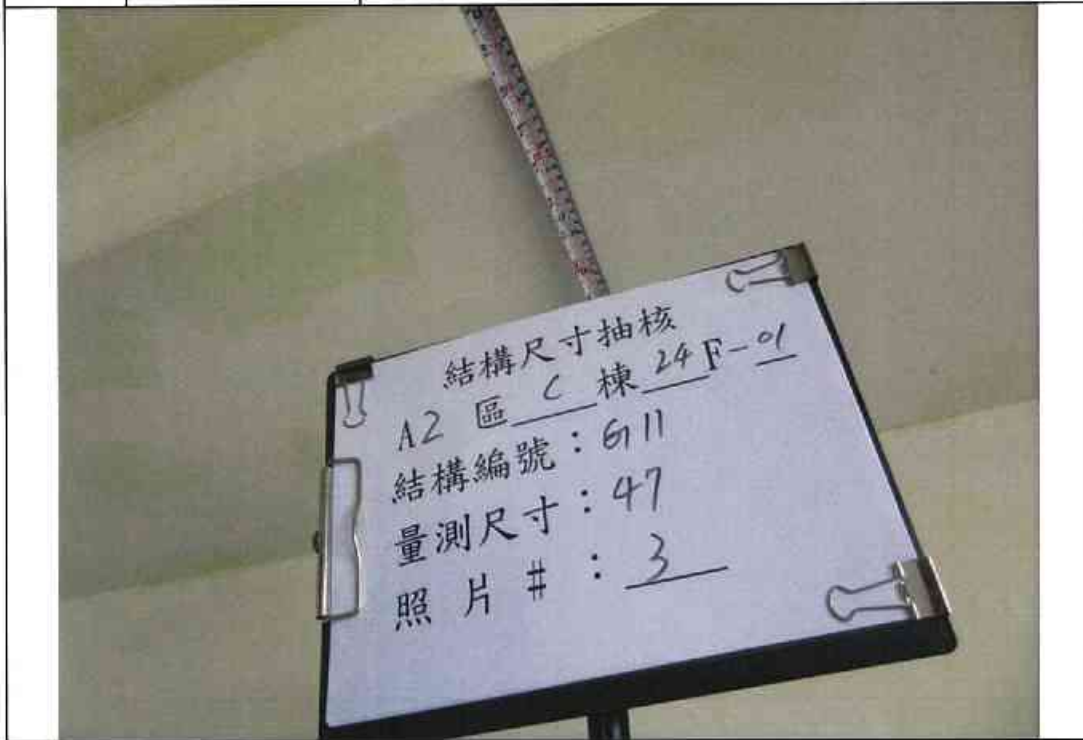 結構尺寸抽核
A2 區 C 棟 24F-01
結構編號：G11
量測尺寸：47
照片 #：3